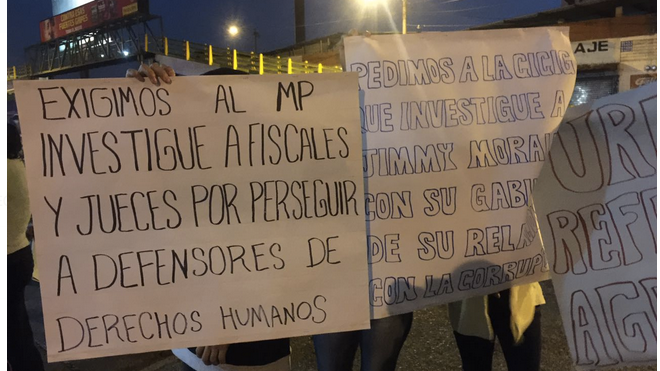 EXIGIMOS AL MP
INVESTIGUE A FISCALES
Y JUECES POR PERSEGUIR
A DEFENSORES DE
DERECHOS HUMANOS
PEDIMOS A LA CICIG
QUE INVESTIGUE A
JIMMY MORA
CON SU GABI
DE SU RELA
CON LA CORRUP
UR
REF
AGR
AJE